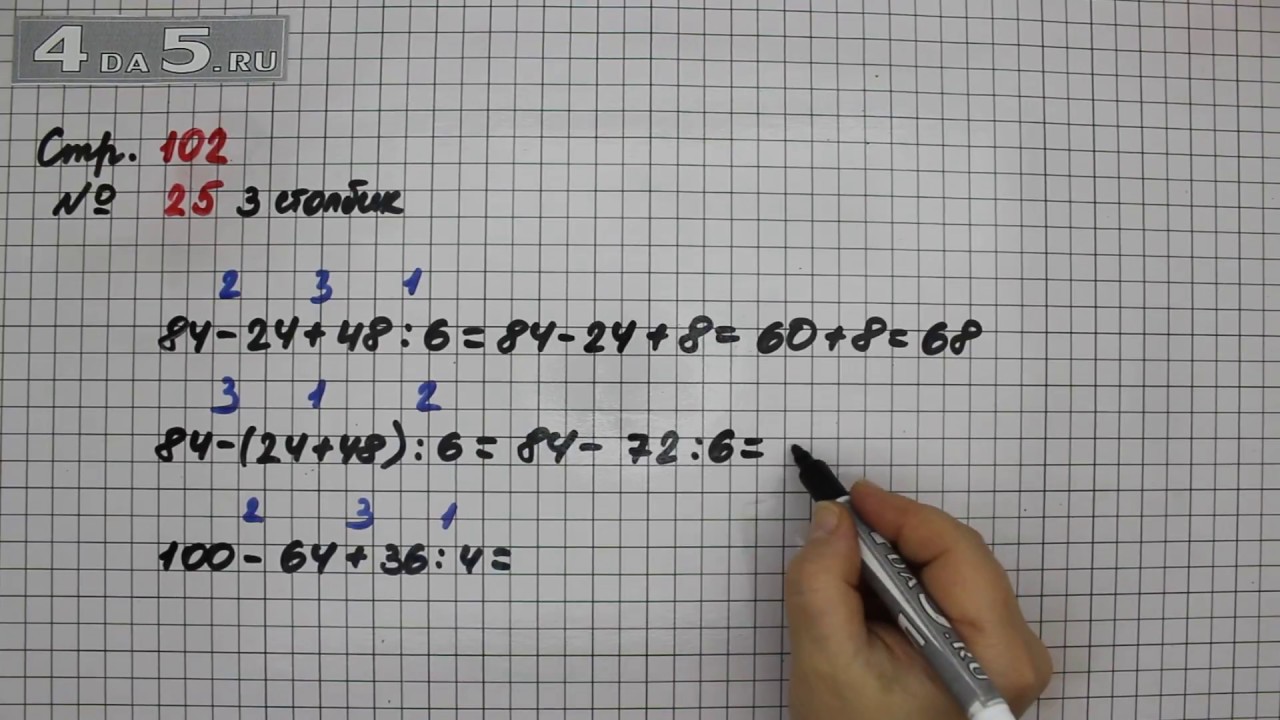 4DA5.RU
Стр. 102
№ 25 3 столбик
2 3 1
84-24+48:6=84-24+8=60+8=68
3 1 2
84-(24+48):6=84-72:6=
2 3 1
100-64+36:4=
4DA5.RU